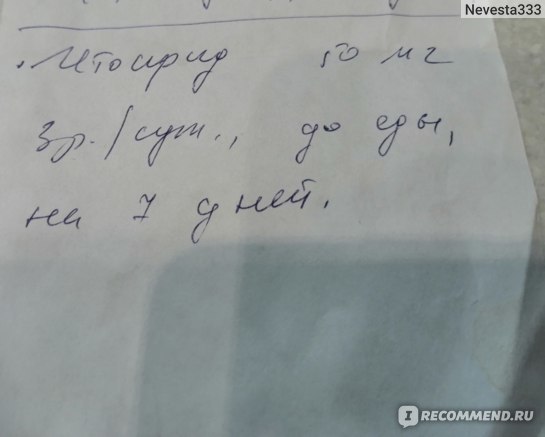 Nevesta333
Итоприд 50 мг
3р./сут., до еды,
на 7 дней.
IRECOMMEND.RU